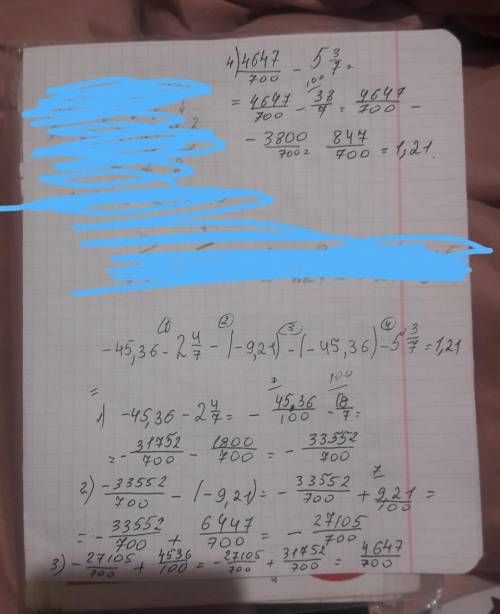 4) 4647/700 - 5 3/7 =
= 4647/700 - 38/7 (100) = 4647/700 -
- 3800/700 = 847/700 = 1,21.
-45,36 - 2 4/7 - (-9,21) - (-45,36) - 5 3/7 = 1,21
=
1) -45,36 - 2 4/7 = - 45,36/100 (7) - 18/7 (100) =
= - 31752/700 - 1800/700 = - 33552/700
2) -33552/700 - (-9,21) = - 33552/700 + 9,21/100 (7) =
= - 33552/700 + 6447/700 = - 27105/700
3) - 27105/700 + 4536/100 = - 27105/700 + 31752/700 = 4647/700